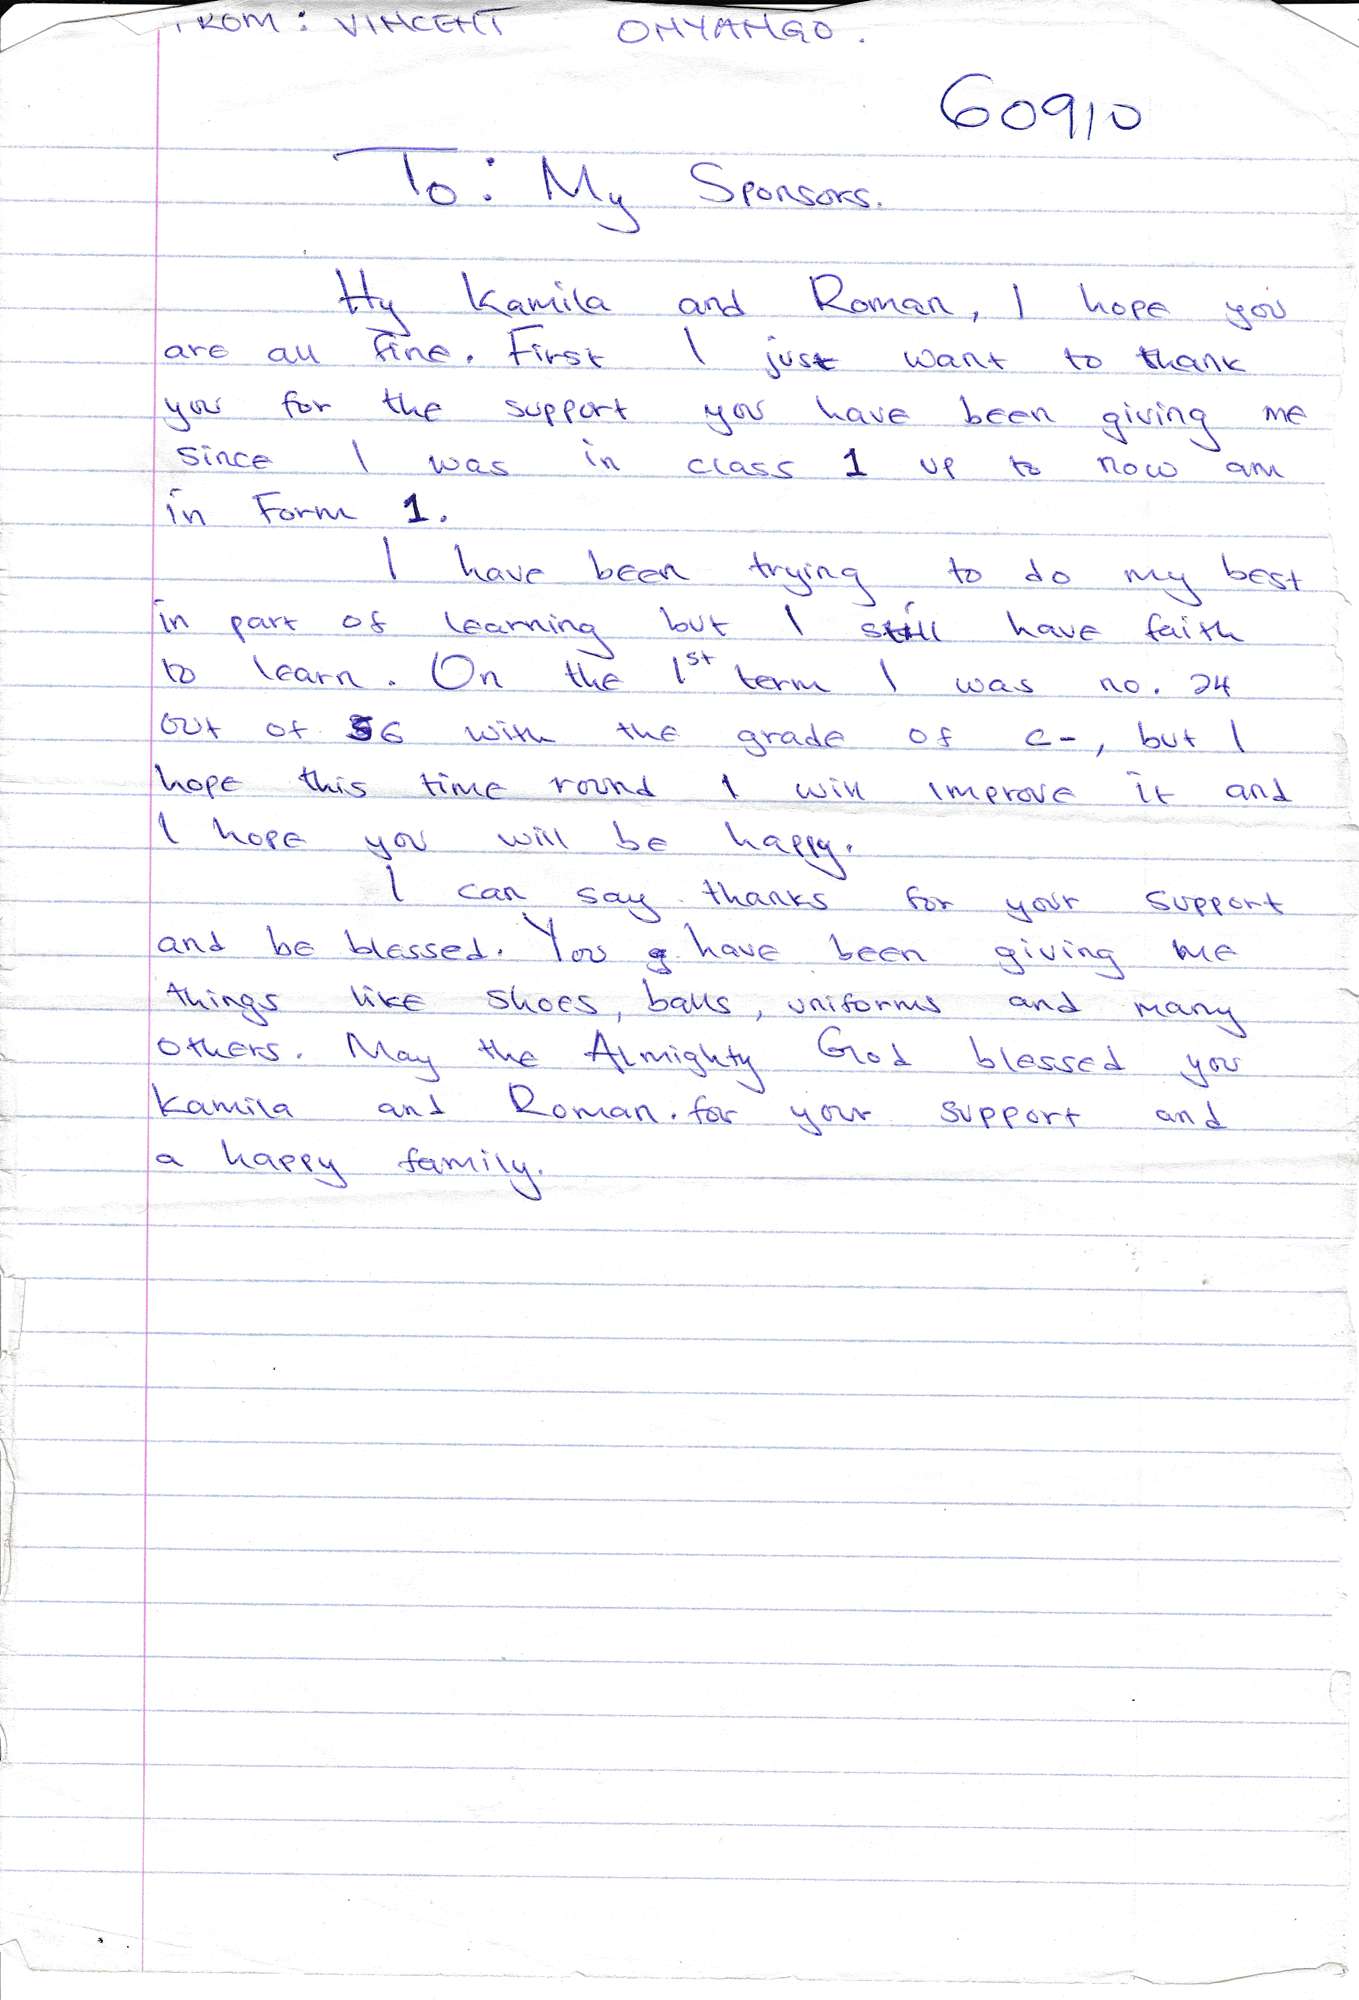 FROM: VINCENT ONYANGO.
60910
To: My Sponsors.
Hy Kamila and Roman, I hope you
are all fine. First I just want to thank
you for the support you have been giving me
since I was in class 1 up to now am
in Form 1.
I have been trying to do my best
in part of learning but I still have faith
to learn. On the 1st term I was no. 24
out of 56 with the grade of c-, but I
hope this time round I will improve it and
I hope you will be happy.
I can say thanks for your support
and be blessed. You have been giving me
things like shoes, balls, uniforms and many
others. May the Almighty God blessed you
Kamila and Roman. for your support and
a happy family.